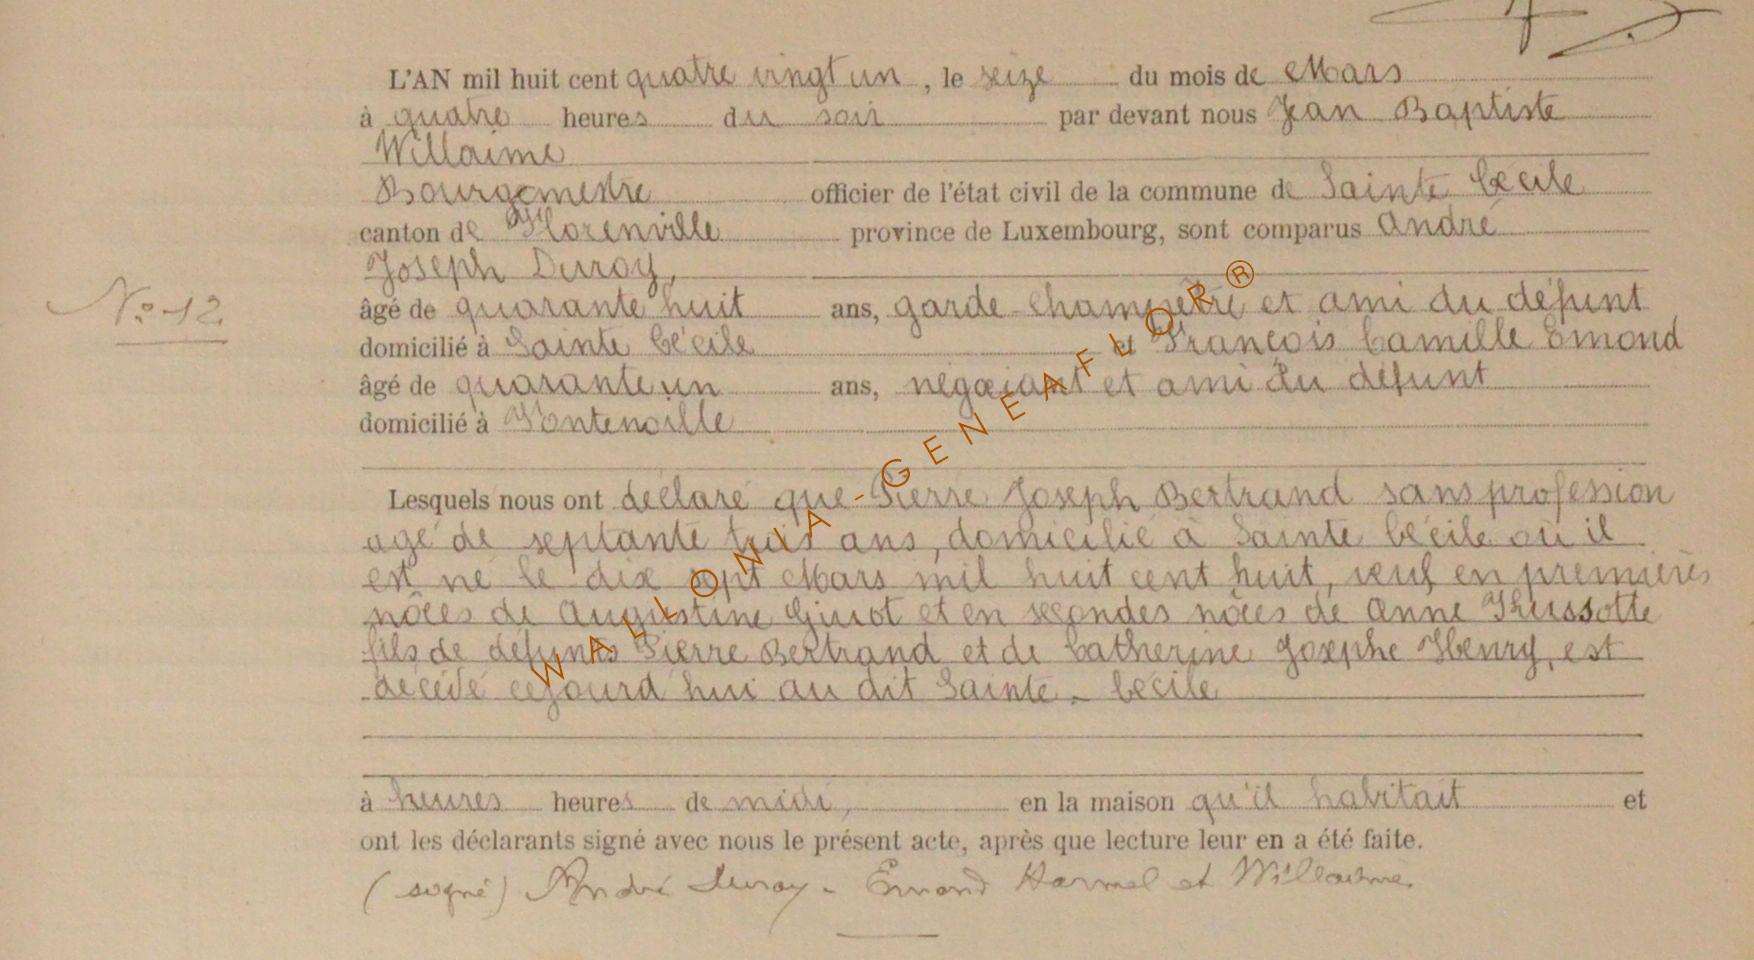 L'AN mil huit cent quatre vingt un, le seize du mois de Mars
à quatre heures du soir par devant nous Jean Baptiste
Willaime
Bourgomestre officier de l'état civil de la commune de Sainte Cécile
canton de Florenville province de Luxembourg, sont comparus André
Joseph Duroy,
N° 12
âgé de quarante huit ans, garde-champêtre et ami du défunt
domicilié à Sainte Cécile et François Camille Emond
âgé de quarante un ans, négociant et ami du défunt
domicilié à Fontenoille
Lesquels nous ont déclaré que Pierre Joseph Bertrand sans profession
agé de septante trois ans, domicilié à Sainte Cécile où il
est né le dix sept Mars mil huit cent huit, veuf en premières
nôces de Augustine Giuot et en secondes nôces de Anne Thussotte
fils de défunts Pierre Bertrand et de Catherine Josephe Henry, est
décédé cejourd'hui au dit Sainte-Cécile
à heures heures de midi, en la maison qu'il habitait et
ont les déclarants signé avec nous le présent acte, après que lecture leur en a été faite.
(signé) André Duroy - Emond Harmel et Willaime.
WALLONIA-GENEAFLOR®